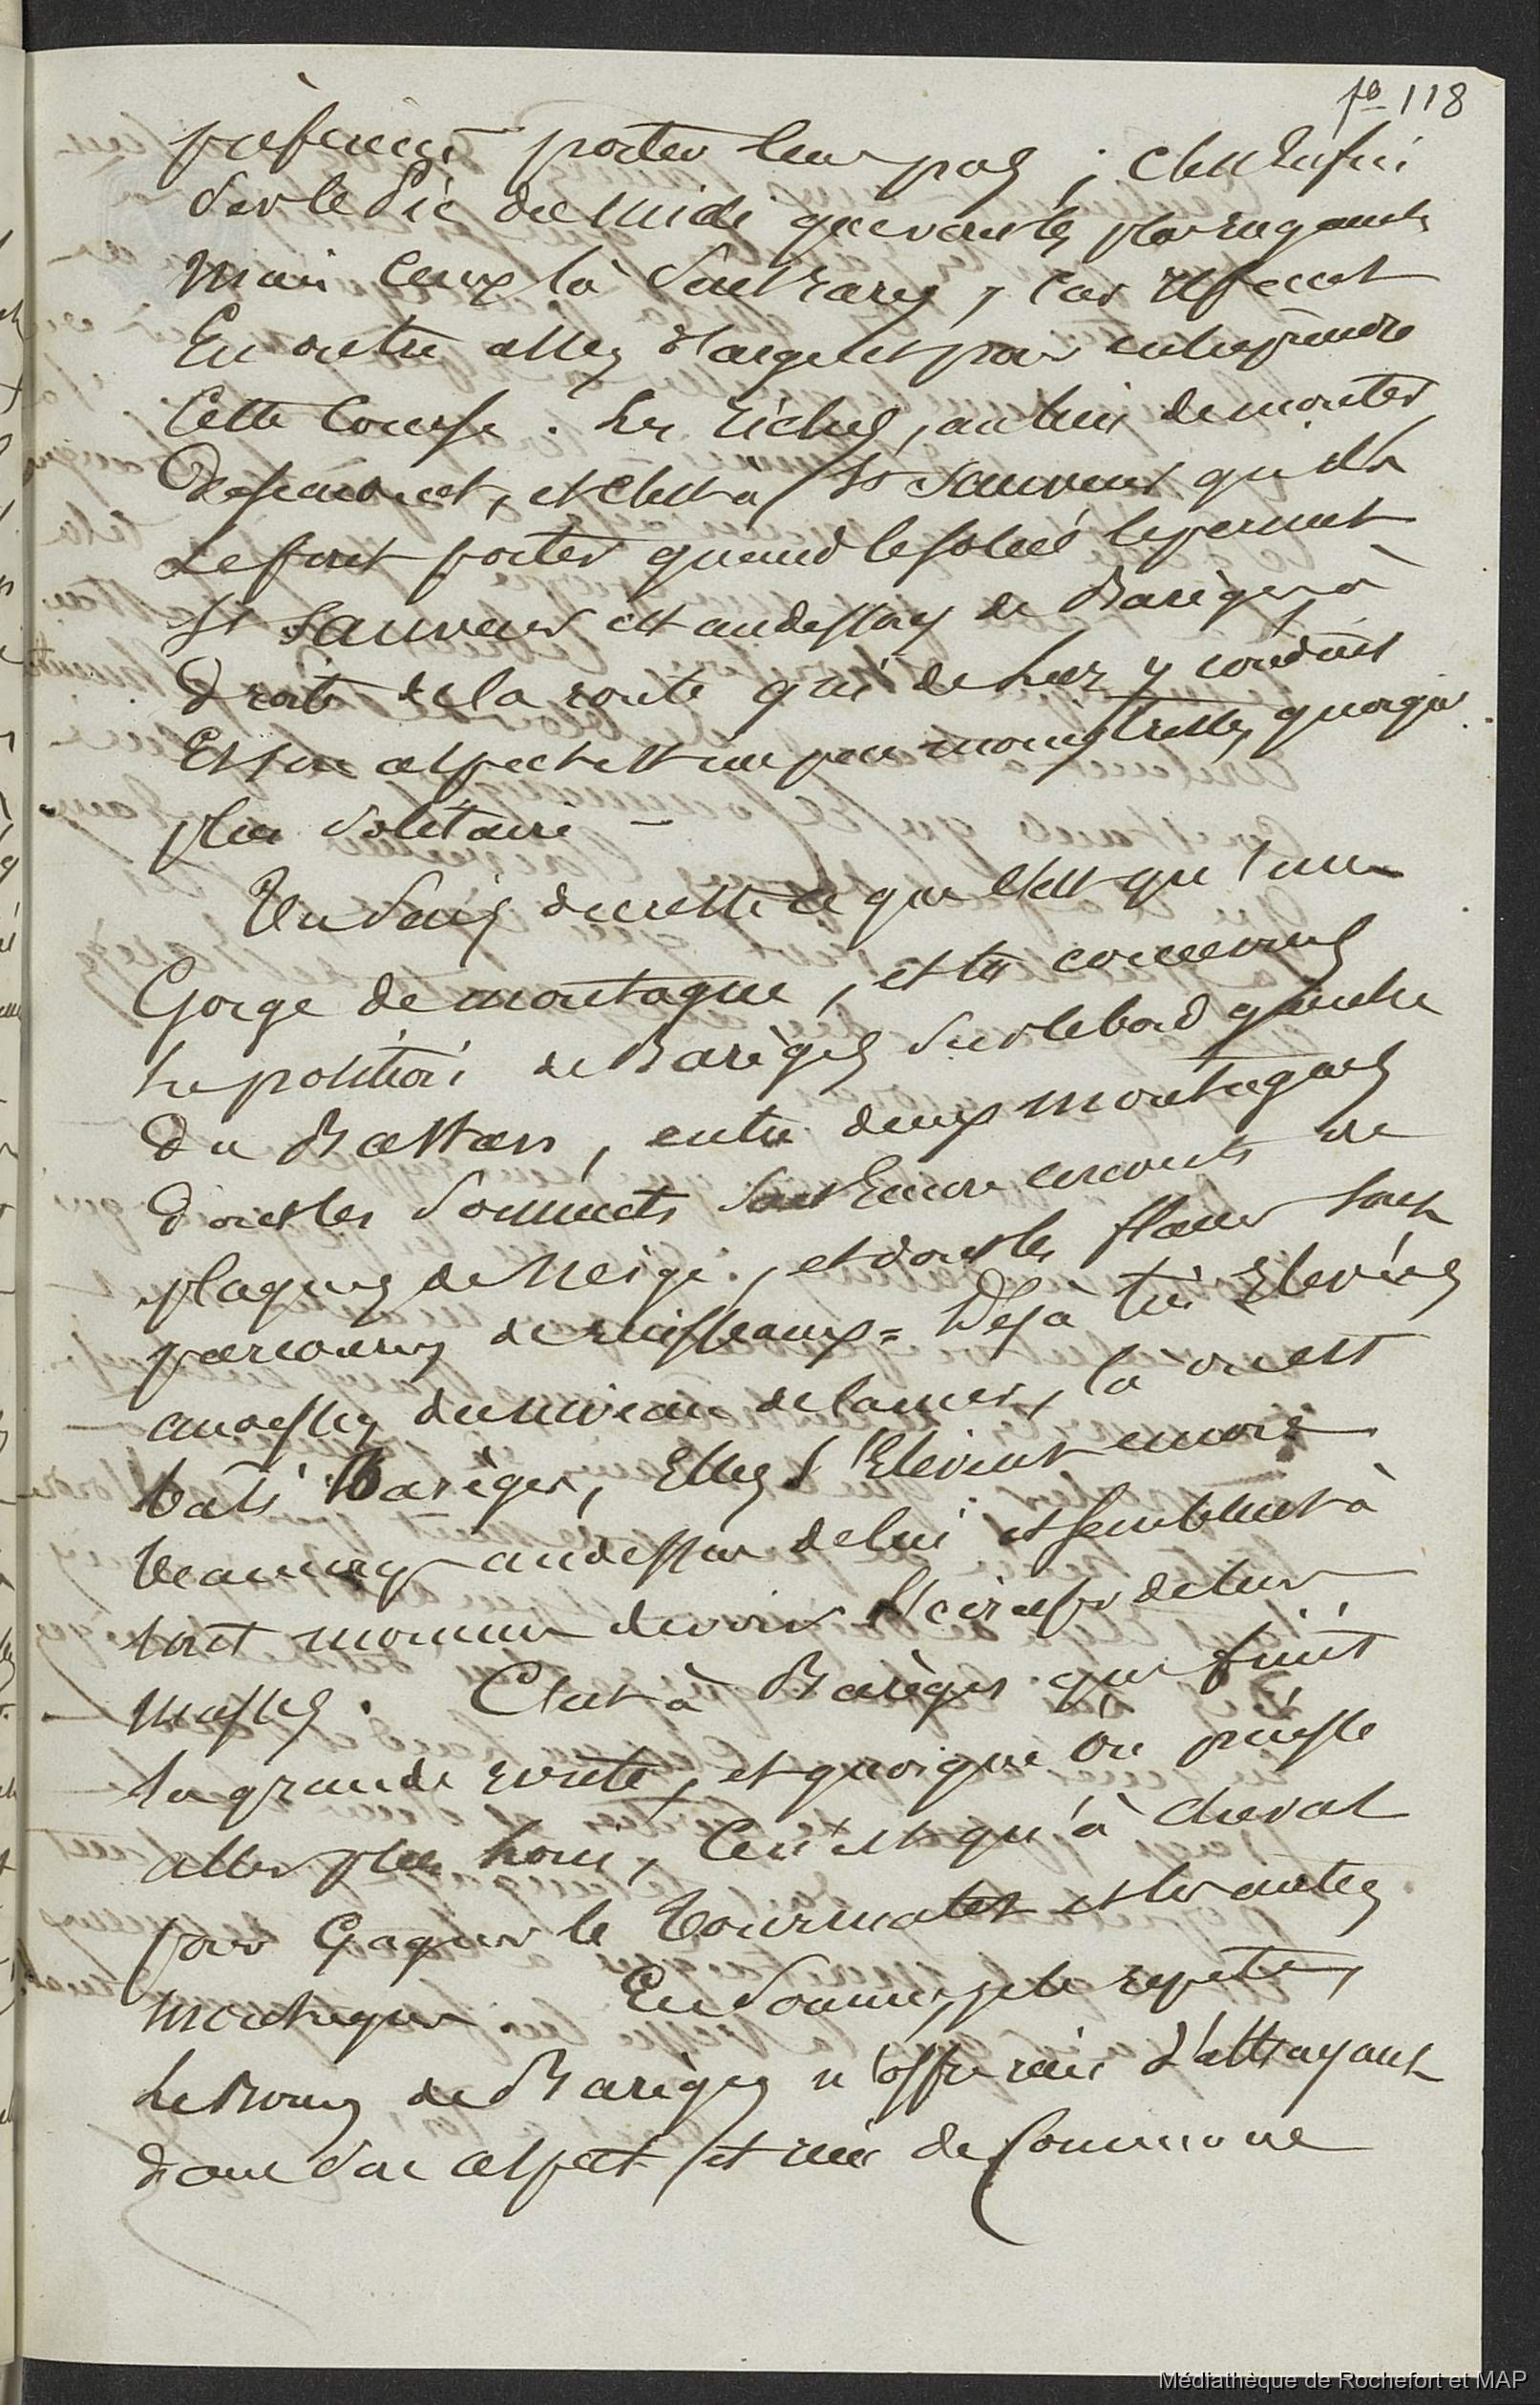 fo 118
préférence porter leur pas ; c'est enfin
sur le Pic du Midi que vont les plus ingambes
mais ceux là sont rares, car il faut
en outre assez d'argent pour entreprendre
cette course. Les riches, au lieu de monter,
descendent, et c'est à St Sauveur qu'ils
se font porter quand le soleil le permet
St Sauveur est au dessous de Barèges à
droite de la route qui de Luz y conduit
Et son aspect est un peu moins triste, quoique
plus solitaire —
Tu sais du reste ce que c'est qu'une
Gorge de montagne, et tu concevras
la position de Barèges sur le bord gauche
du Bastan, entre deux montagnes
dont les sommets sont encore couverts de
plaques de neige, et dont les flancs sont
parcourus de ruisseaux = Déjà très élevées
au dessus du niveau de la mer, là où est
bâti Barèges, Elles s'élèvent encore
beaucoup au dessus de lui et semblent à
tout moment devoir l'écraser de leur
masses. C'est à Barèges que finit
la grande route, et quoique on puisse
aller plus loin, ce n'est qu'à cheval
pour gagner le Tourmalet et les autres
montagnes. En somme, je le repète,
le Bourg de Barèges n'offre rien d'attrayant
dans son aspect, et rien de commode
Médiathèque de Rochefort et MAP